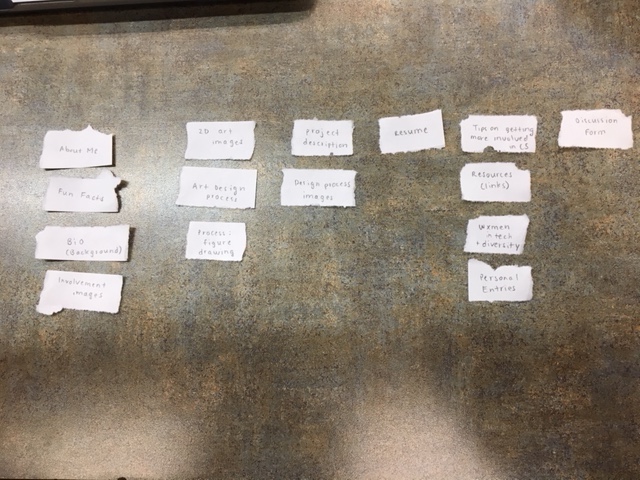 About Me
Fun Facts
Bio
(Background)
Involvement
images
2D art
images
Art Design
process
Process:
figure
drawing
project
description
Design process
images
Resume
Tips on getting
more involved
in CS
Resources
(links)
Women
n tech
+ diversity
Personal
Entries
Discussion
Form